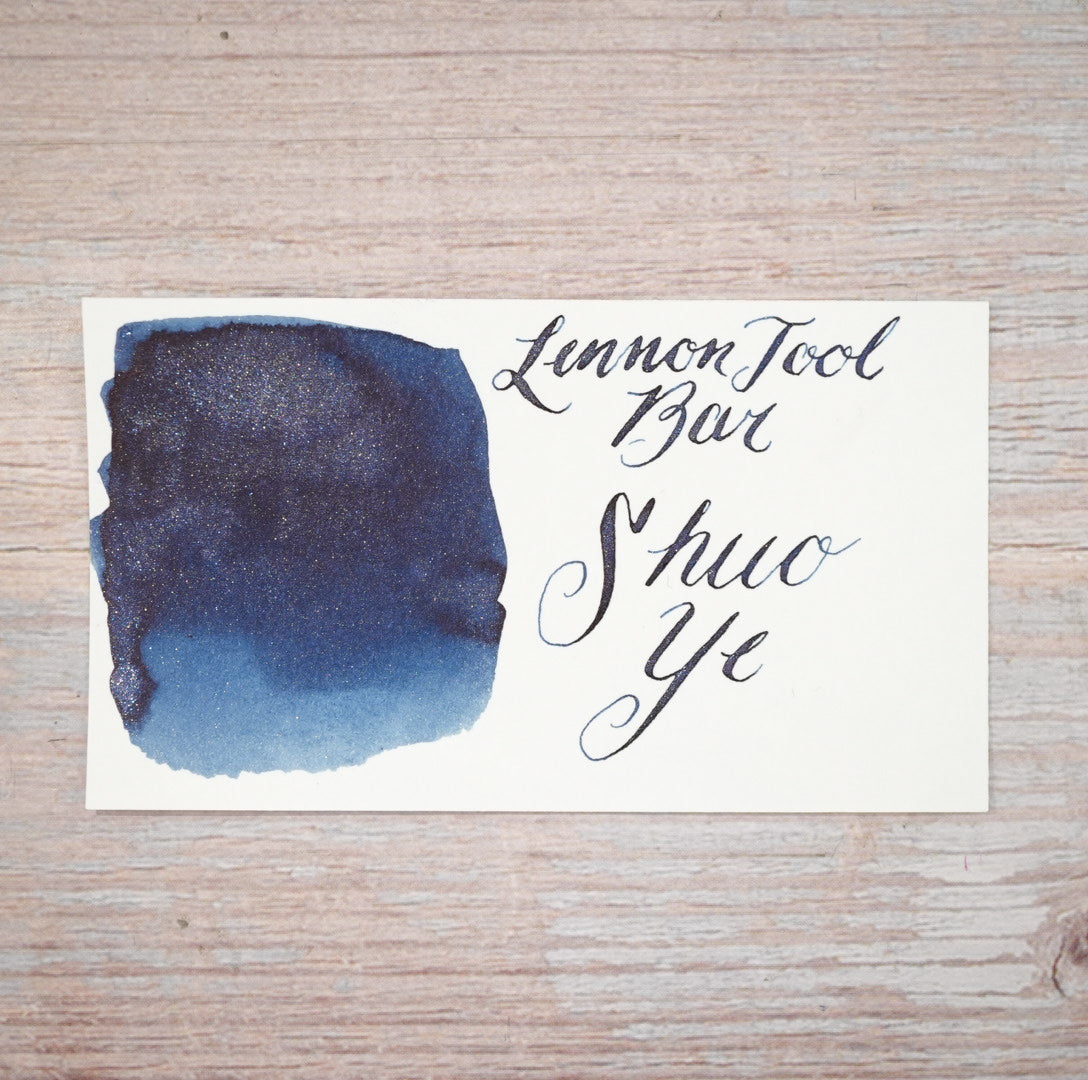 Lennon Tool
Bar
Shuo
Ye